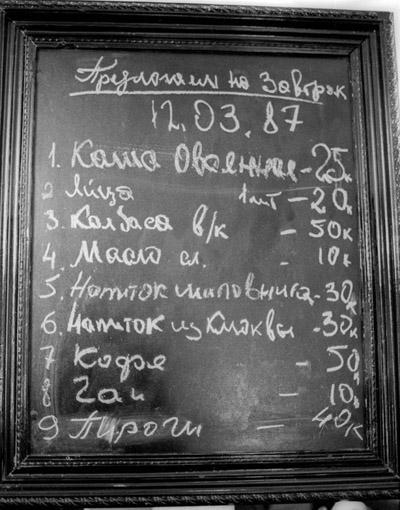 Предлогаем на Завтрак
12.03.87
1. Каша Овсянная - 25к
2 Яйца 1шт - 20к
3. Колбаса в/к - 50к
4. Масло сл. - 10к
5. Напиток шиповника - 30к
6. Напиток из Клюквы - 30к
7 Кофе - 50к
8 Чаи - 10к
9 Пироги - 40к